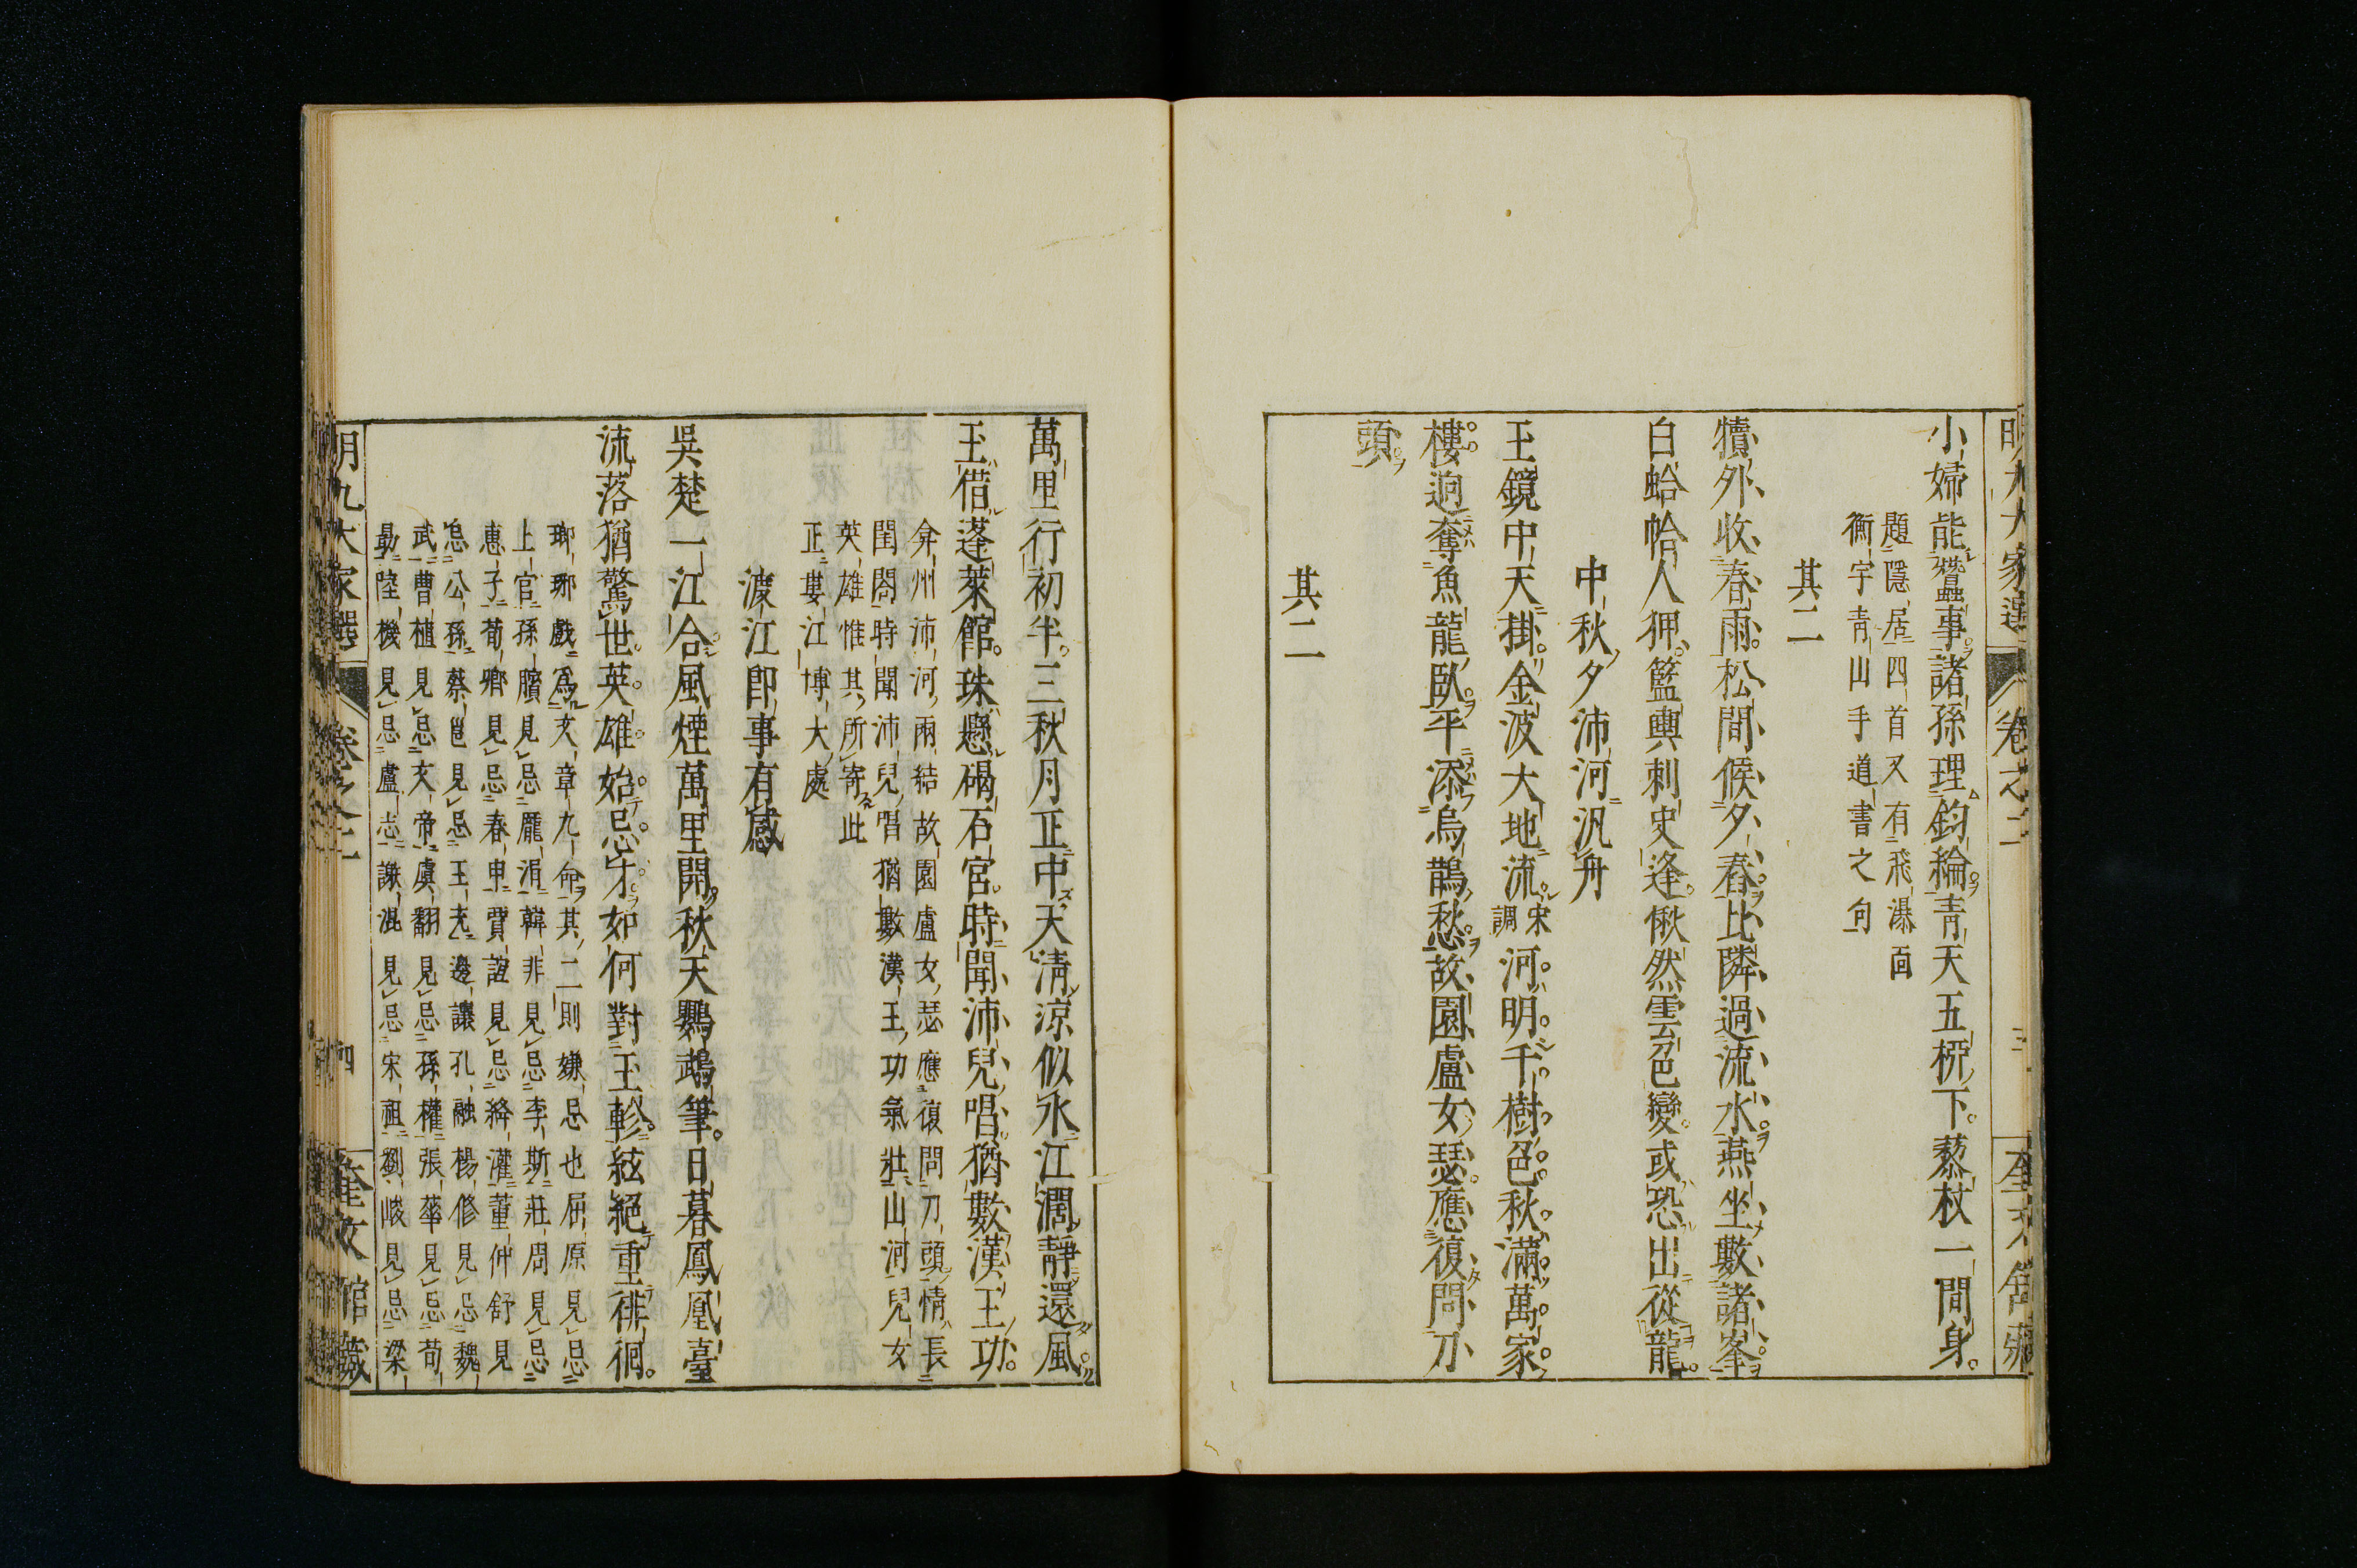 小婦能蠶事諸孫理釣綸靑天五椏下藜杖一間身
題隱居四首又有飛瀑面
衡宇靑山手道書之句
其二
犢外收春雨松間候夕舂比隣過流水燕坐數諸峯
白蛤帢人狎籃輿刺史逢愀然雲色變或恐出從龍
中秋夕沛河汎舟
玉鏡中天掛金波大地流宋調河明千樹色秋滿萬家
樓逈奪魚龍臥平添烏鵲愁故園盧女瑟應復問刀
頭
其二
萬里行初半三秋月正中天淸凉似水江濶靜還風
玉借蓬萊館珠懸碣石宮時聞沛兒唱猶數漢王功
弇州沛河兩結故園盧女瑟應復問刀頭情長
閨閤時聞沛兒唱猶數漢王功氣壯山河兒女
英雄惟其所寄此
正婁江博大處
渡江卽事有感
吳楚一江合風煙萬里開秋天鸚鵡筆日暮鳳凰臺
流落猶驚世英雄始忌才如何對玉軫絃絕重徘徊
瑯琊戲爲文章九命其二則嫌忌也屈原見忌
上官孫臏見忌龐涓韓非見忌李斯莊周見忌
惠子荀卿見忌春申賈誼見忌絳灌董仲舒見
忌公孫蔡邕見忌王允邊讓孔融楊修見忌魏
武曹植見忌文帝虞翻見忌孫權張華見忌荀
勗陸機見忌盧志謝混見忌宋祖劉峻見忌梁
明九大家選
卷之二
四
奎文館藏